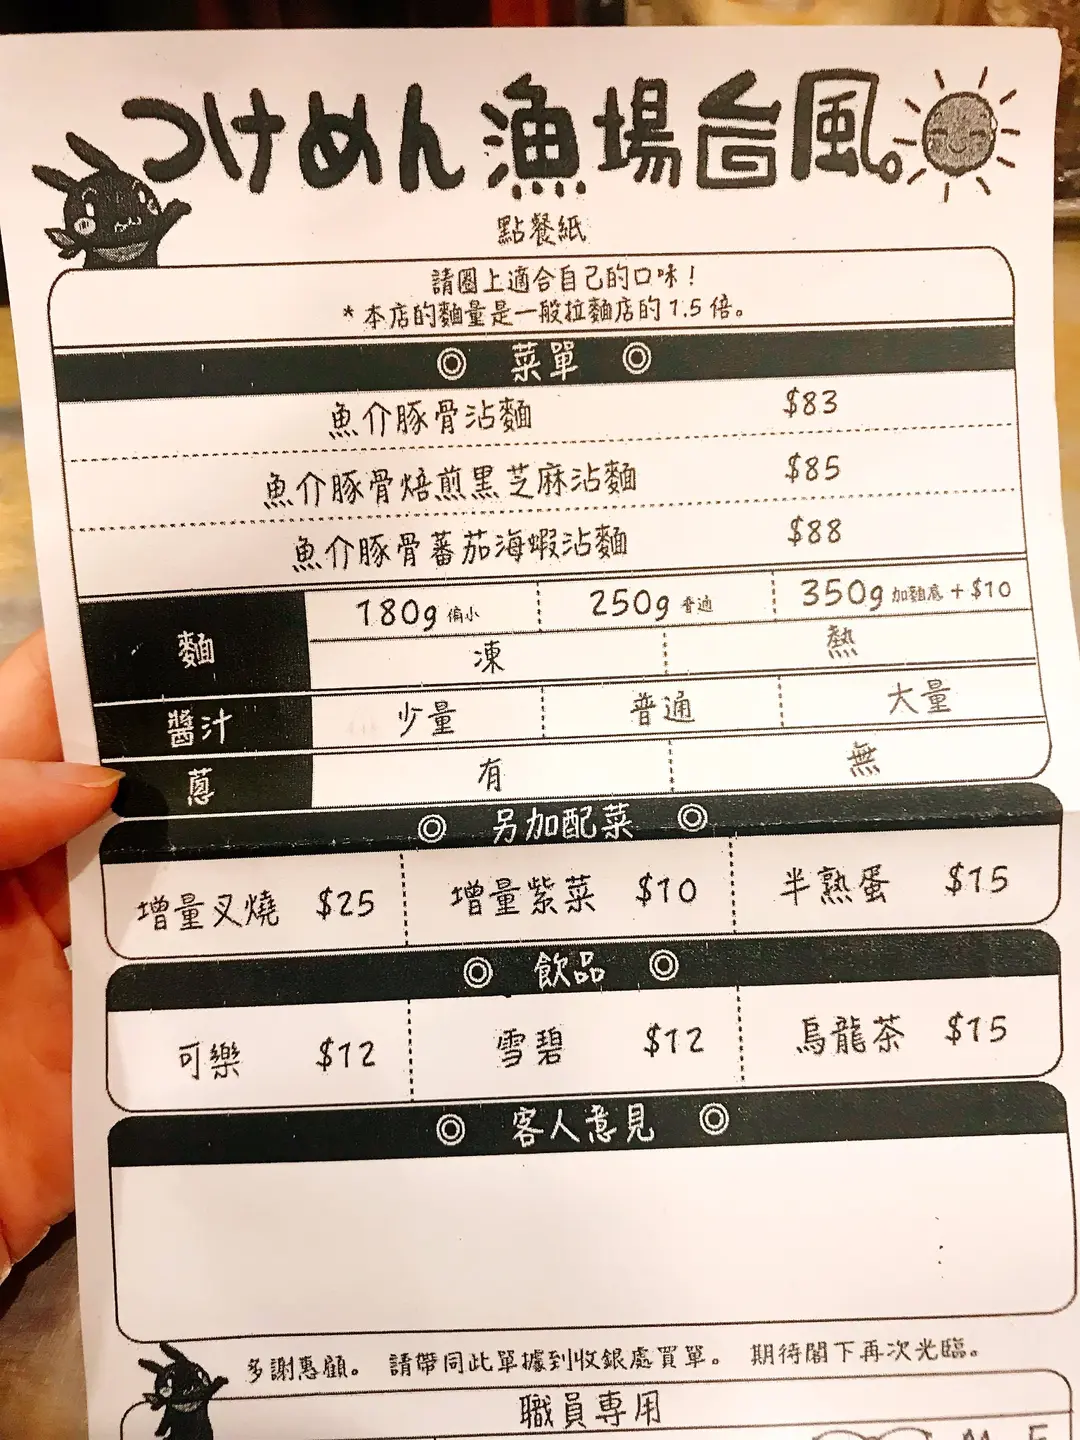 つけめん 漁場台風。
點餐紙
請圈上適合自己的口味！
*本店的麵量是一般拉麵店的1.5倍。
◎ 菜單 ◎
魚介豚骨沾麵 $83
魚介豚骨焙煎黑芝麻沾麵 $85
魚介豚骨蕃茄海蝦沾麵 $88
麵 180g 偏小 250g 普通 350g 加麵底 + $10
凍 熱
醬汁 少量 普通 大量
蔥 有 無
◎ 另加配菜 ◎
增量叉燒 $25 增量紫菜 $10 半熟蛋 $15
◎ 飲品 ◎
可樂 $12 雪碧 $12 烏龍茶 $15
◎ 客人意見 ◎
多謝惠顧。 請帶同此單據到收銀處買單。 期待閣下再次光臨。
職員專用